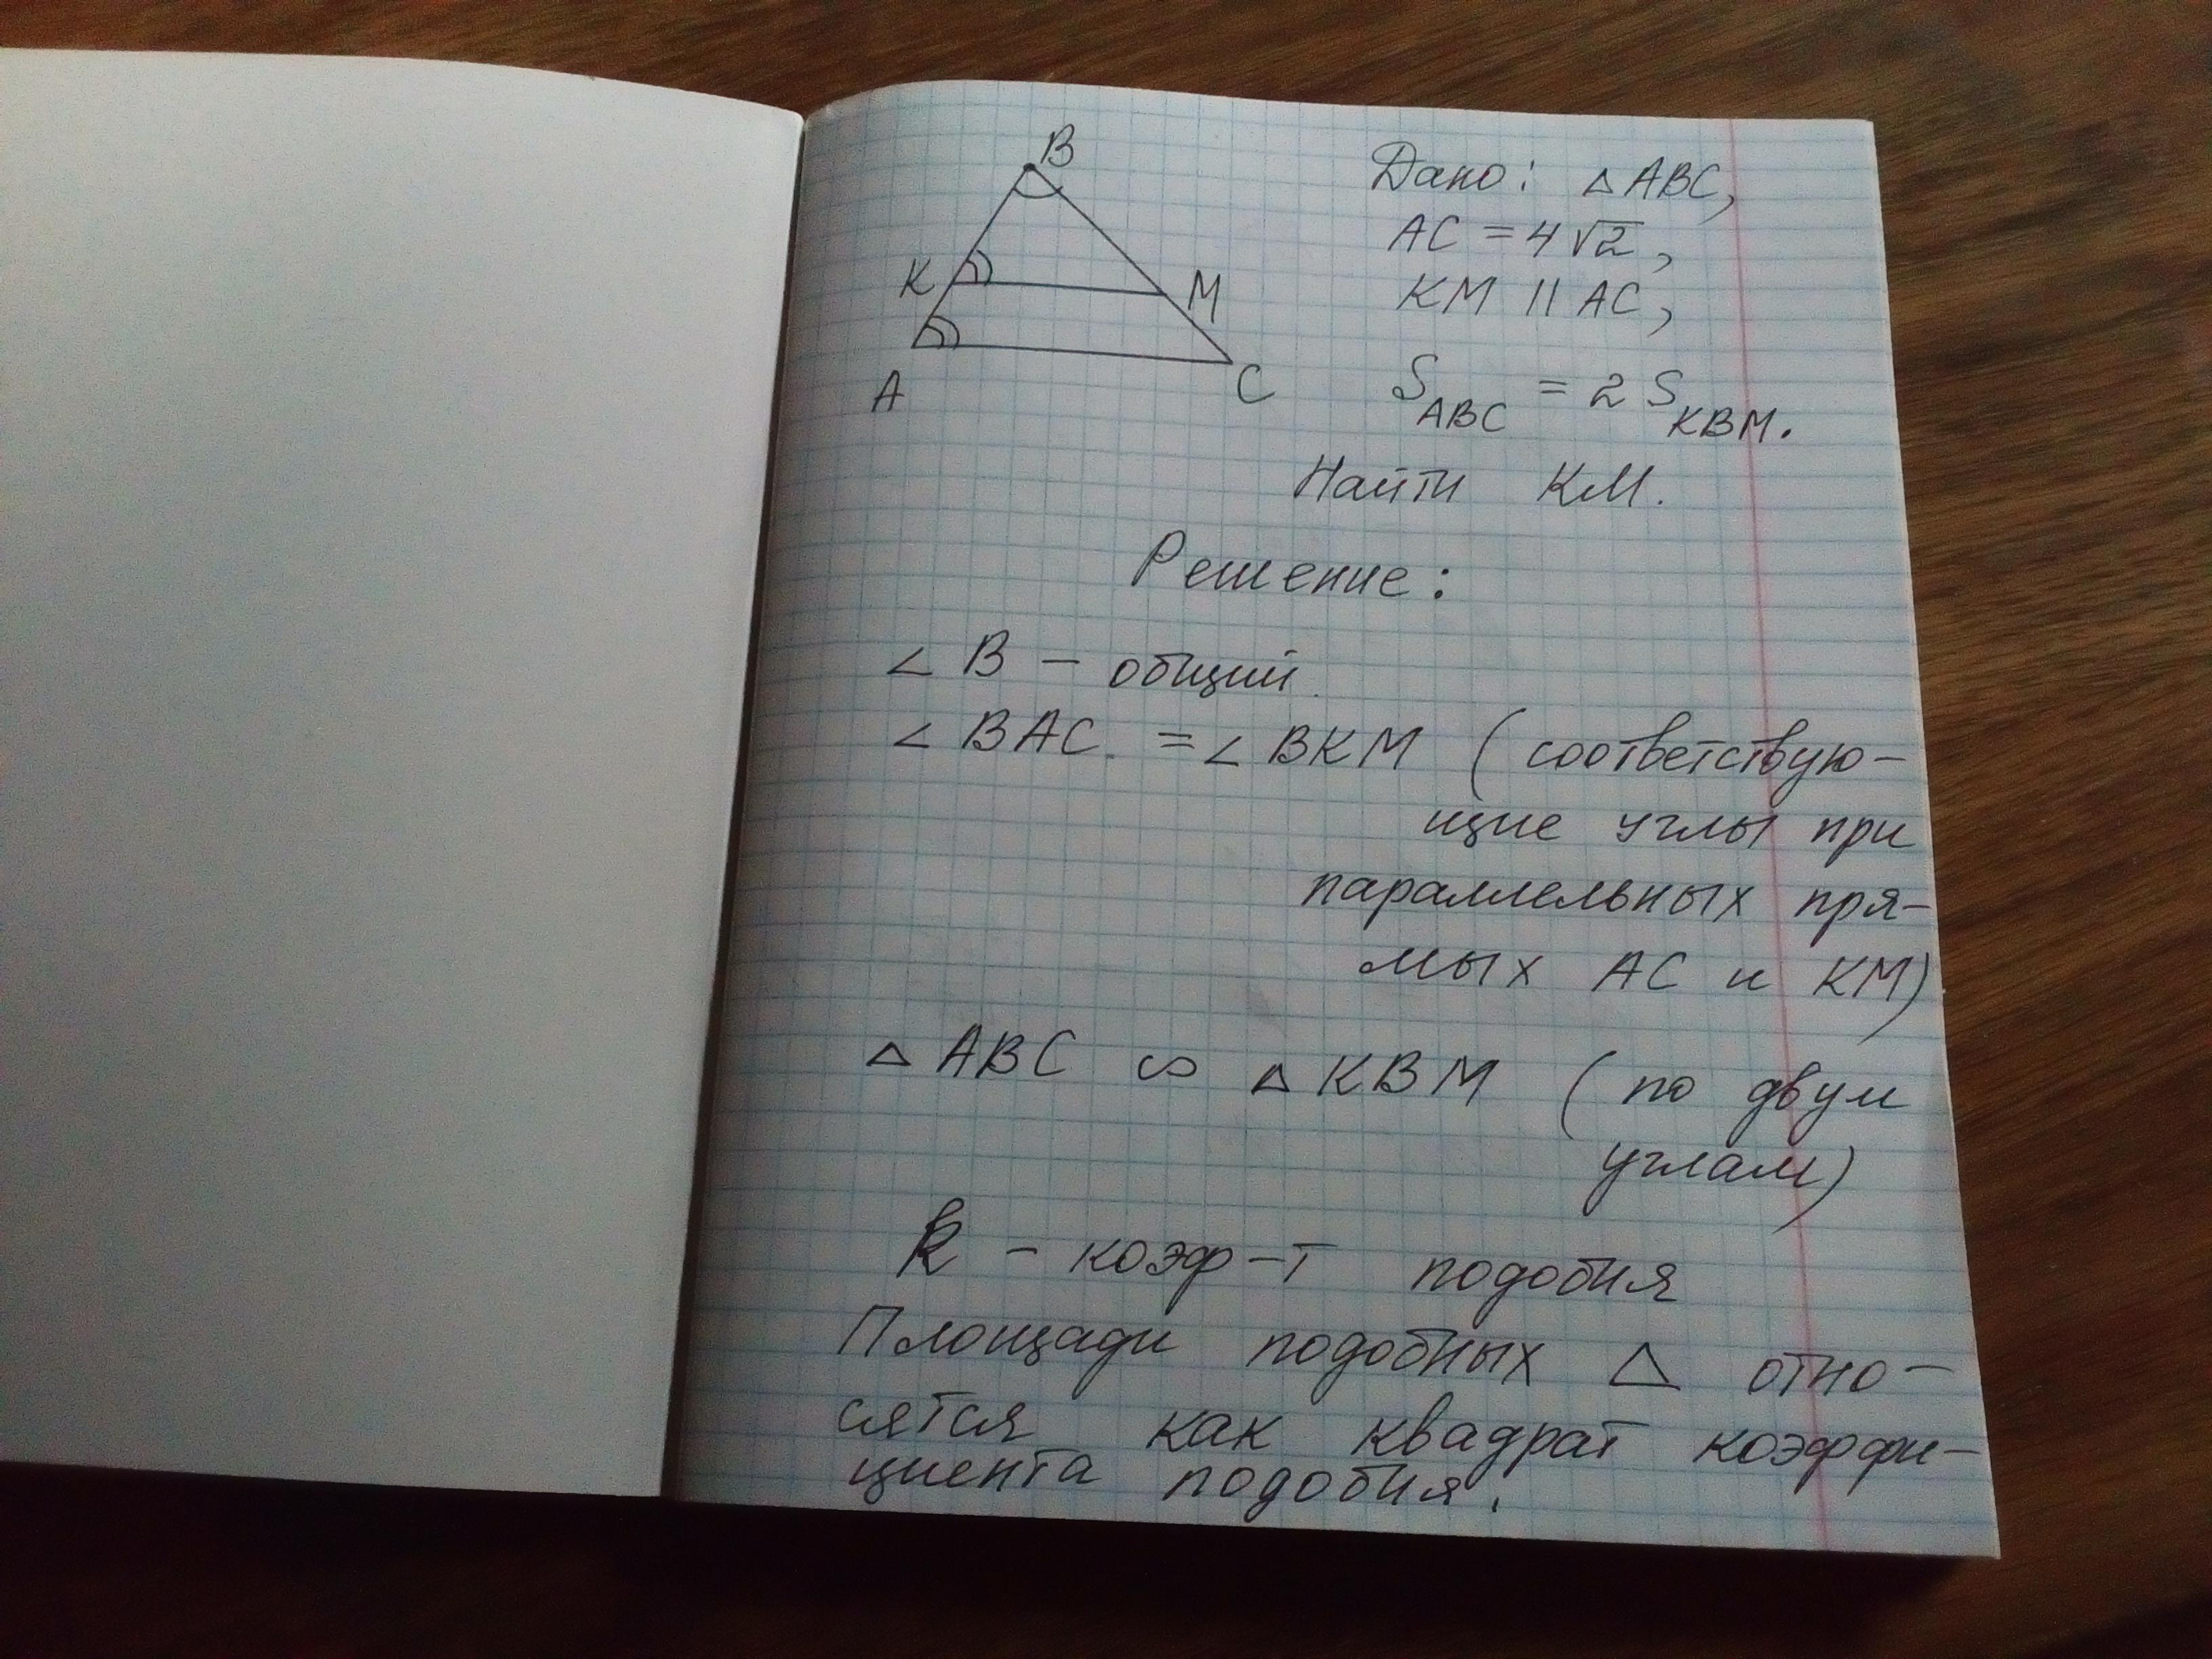 B
K
M
A
C
Дано: △ABC,
AC = 4√2,
KM || AC,
S_ABC = 2 S_KBM.
Найти KM.
Решение:
∠B – общий.
∠BAC = ∠BKM (соответствую–
щие углы при
параллельных пря–
мых AC и KM)
△ABC ∽ △KBM (по двум
углам)
k – коэф–т подобия
Площади подобных △ отно–
сятся как квадрат коэффи–
циента подобия.